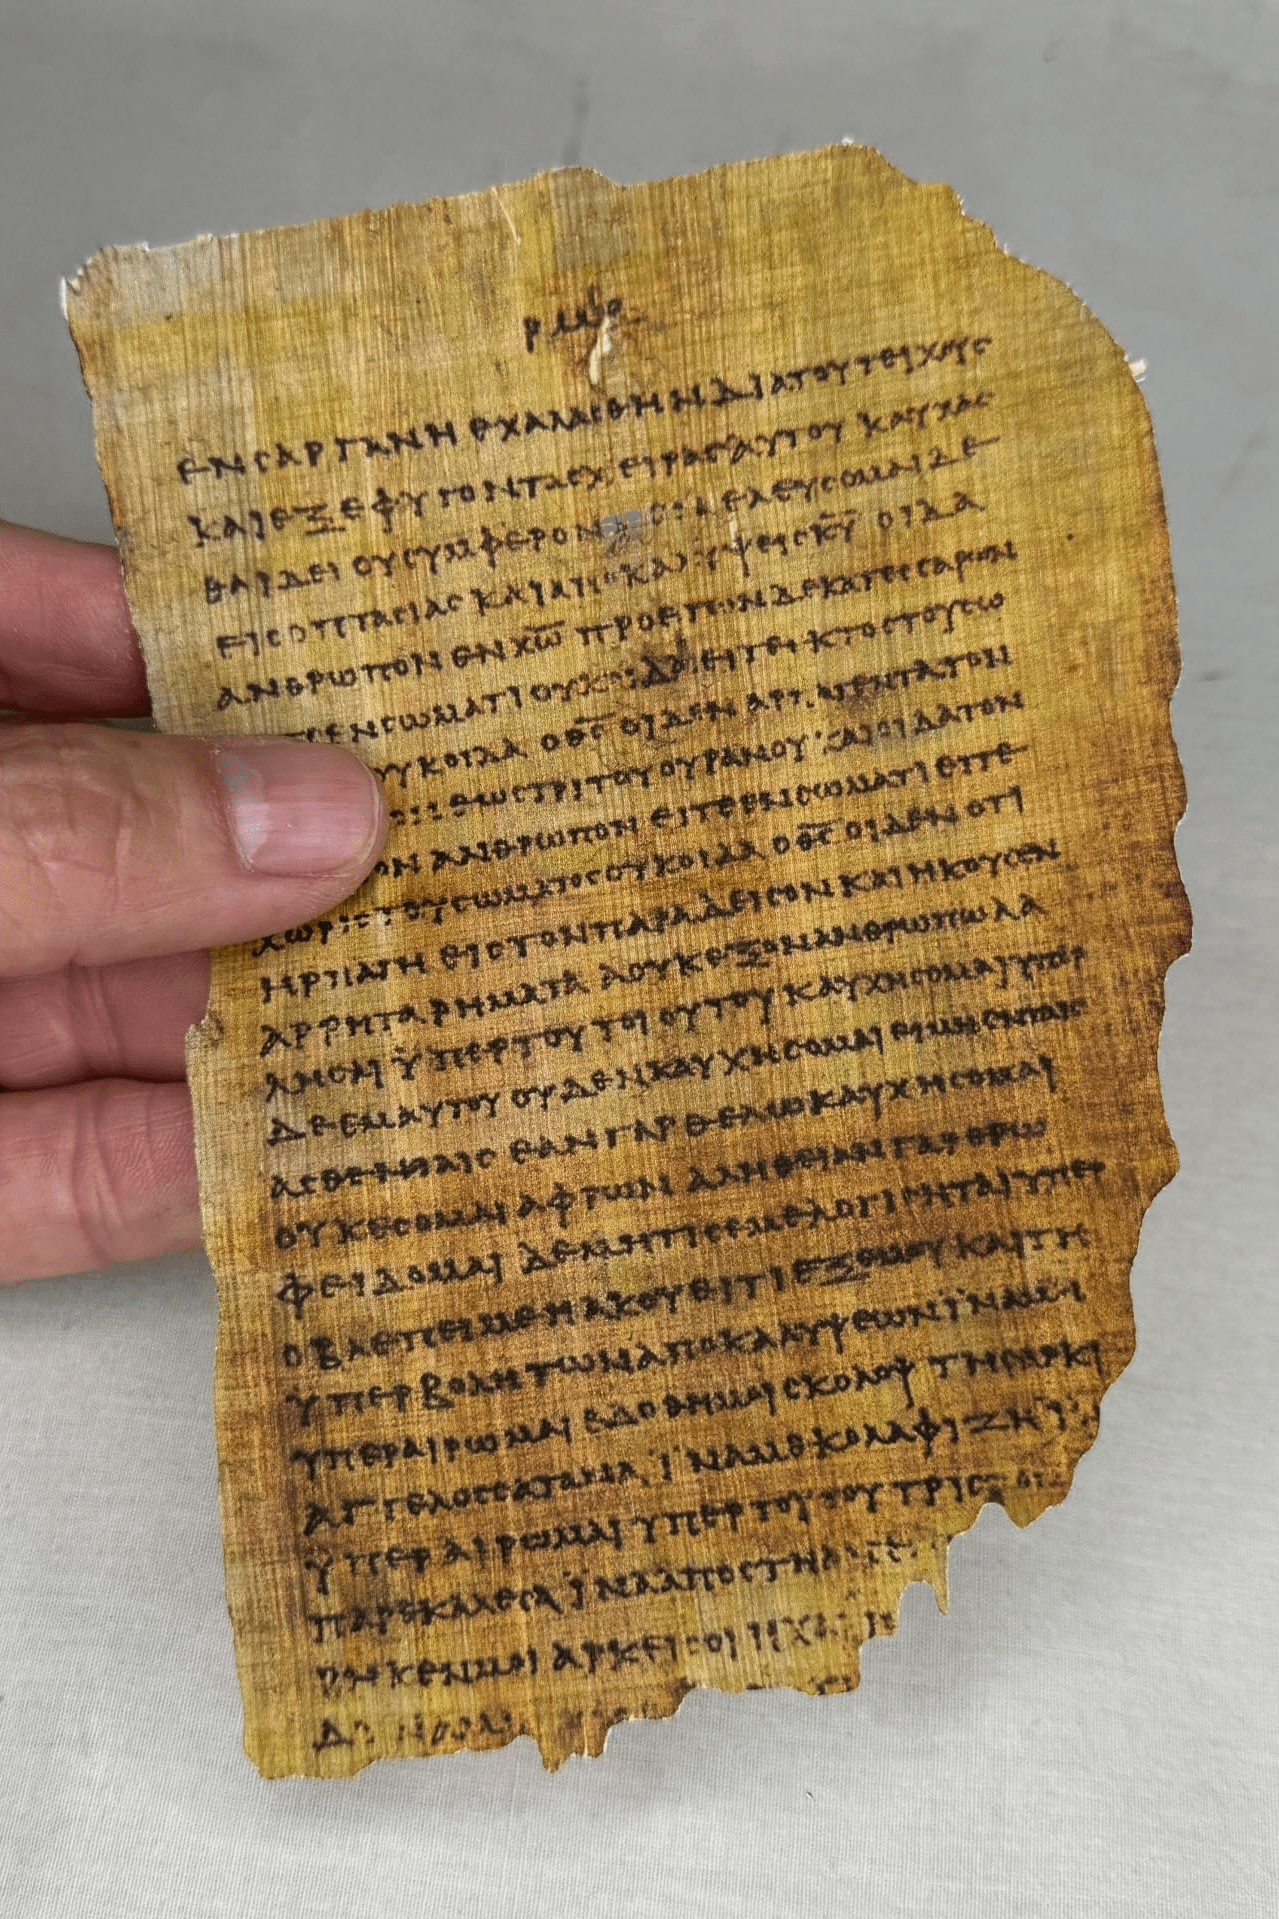 ρμθ
ΕΝ ΣΑΡΓΑΝΗ ΕΧΑΛΑΣΘΗΝ ΔΙΑ ΤΟΥ ΤΕΙΧΟΥΣ
ΚΑΙ ΕΞΕΦΥΓΟΝ ΤΑΣ ΧΕΙΡΑΣ ΑΥΤΟΥ ΚΑΥΧΑΣ
ΘΑΙ ΔΕΙ ΟΥ ΣΥΜΦΕΡΟΝ ΕΛΕΥΣΟΜΑΙ ΔΕ
ΕΙΣ ΟΠΤΑΣΙΑΣ ΚΑΙ ΑΠΟΚΑΛΥΨΕΙΣ Κ̅Υ̅ ΟΙΔΑ
ΑΝΘΡΩΠΟΝ ΕΝ Χ̅Ω̅ ΠΡΟ ΕΤΩΝ ΔΕΚΑΤΕΣΣΑΡΩΝ
ΕΝ ΣΩΜΑΤΙ ΟΥΚ ΟΙΔΑ ΕΙΤΕ ΕΚΤΟΣ ΤΟΥ ΣΩ
ΟΥΚ ΟΙΔΑ Ο Θ̅Σ̅ ΟΙΔΕΝ ΑΡΠΑΓΕΝΤΑ ΤΟΝ
ΕΩΣ ΤΡΙΤΟΥ ΟΥΡΑΝΟΥ ΚΑΙ ΟΙΔΑ ΤΟΝ
ΑΝΘΡΩΠΟΝ ΕΙΤΕ ΕΝ ΣΩΜΑΤΙ ΕΙΤΕ
ΧΩΡΙΣ ΤΟΥ ΣΩΜΑΤΟΣ ΟΥΚ ΟΙΔΑ Ο Θ̅Σ̅ ΟΙΔΕΝ ΟΤΙ
ΗΡΠΑΓΗ ΕΙΣ ΤΟΝ ΠΑΡΑΔΕΙΣΟΝ ΚΑΙ ΗΚΟΥΣΕΝ
ΑΡΡΗΤΑ ΡΗΜΑΤΑ Α ΟΥΚ ΕΞΟΝ ΑΝΘΡΩΠΩ ΛΑ
ΛΗΣΑΙ ΫΠΕΡ ΤΟΥ ΤΟΙΟΥΤΟΥ ΚΑΥΧΗΣΟΜΑΙ ΥΠΕΡ
ΔΕ ΕΜΑΥΤΟΥ ΟΥΔΕΝ ΚΑΥΧΗΣΟΜΑΙ ΕΙ ΜΗ ΕΝ ΤΑΙΣ
ΑΣΘΕΝΙΑΙΣ ΕΑΝ ΓΑΡ ΘΕΛΩ ΚΑΥΧΗΣΟΜΑΙ
ΟΥΚ ΕΣΟΜΑΙ ΑΦΡΩΝ ΑΛΗΘΕΙΑΝ ΓΑΡ ΕΡΩ
ΦΕΙΔΟΜΑΙ ΔΕ ΜΗ ΤΙΣ ΕΜΕ ΛΟΓΙΣΗΤΑΙ ΥΠΕΡ
Ο ΒΛΕΠΕΙ ΜΕ Η ΑΚΟΥΕΙ ΤΙ ΕΞ ΕΜΟΥ ΚΑΙ ΤΗ
ΥΠΕΡΒΟΛΗ ΤΩΝ ΑΠΟΚΑΛΥΨΕΩΝ ΪΝΑ ΜΗ
ΥΠΕΡΑΙΡΩΜΑΙ ΕΔΟΘΗ ΜΟΙ ΣΚΟΛΟΨ ΤΗ ΣΑΡΚΙ
ΑΓΓΕΛΟΣ ΣΑΤΑΝΑ ΪΝΑ ΜΕ ΚΟΛΑΦΙΖΗ
ΥΠΕΡΑΙΡΩΜΑΙ ΥΠΕΡ ΤΟΥΤΟΥ ΤΡΙΣ
ΠΑΡΕΚΑΛΕΣΑ ΪΝΑ ΑΠΟΣΤΗ
ΚΕΝ ΜΟΙ ΑΡΚΕΙ ΣΟΙ Η ΧΑ